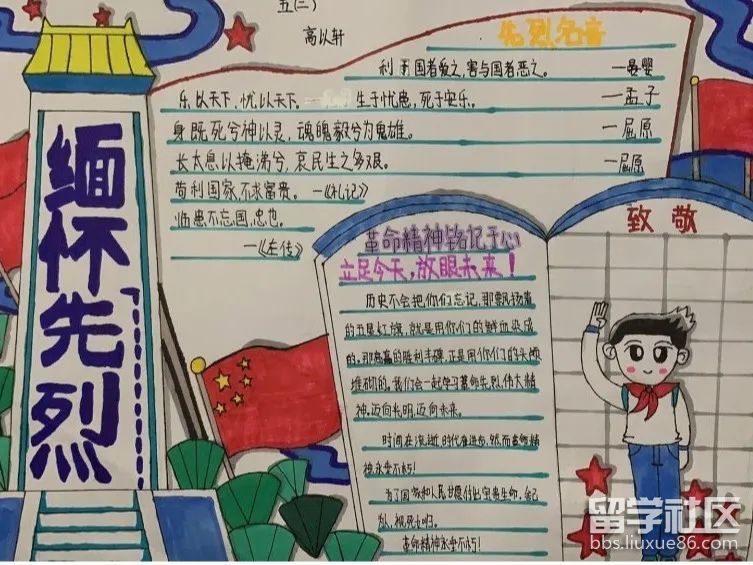 五(二)
高以轩
先烈名言
利于国者爱之,害与国者恶之。 —晏婴
乐以天下,忧以天下, 生于忧患,死于安乐。 —孟子
身既死兮神以灵,魂魄毅兮为鬼雄。 —屈原
长太息以掩涕兮,哀民生之多艰。 —屈原
苟利国家,不求富贵。—《礼记》
临患不忘国,忠也。
—《左传》
缅怀先烈
革命精神铭记于心
立足今天,放眼未来!
历史不会把你们忘记,那飘扬着
的五星红旗,就是用你们的鲜血染成
的。那高高的胜利丰碑,正是用你们的头颅
堆砌的。我们会一起学习革命先烈,伟大精
神,迈向光明,迈向未来。
时间在流逝,时代在进步,然而革命精
神永垂不朽!
为了国家和人民甘愿付出宝贵生命,舍己
为人,视死如归。
革命精神永垂不朽!
致敬
留学社区
bbs.liuxue86.com